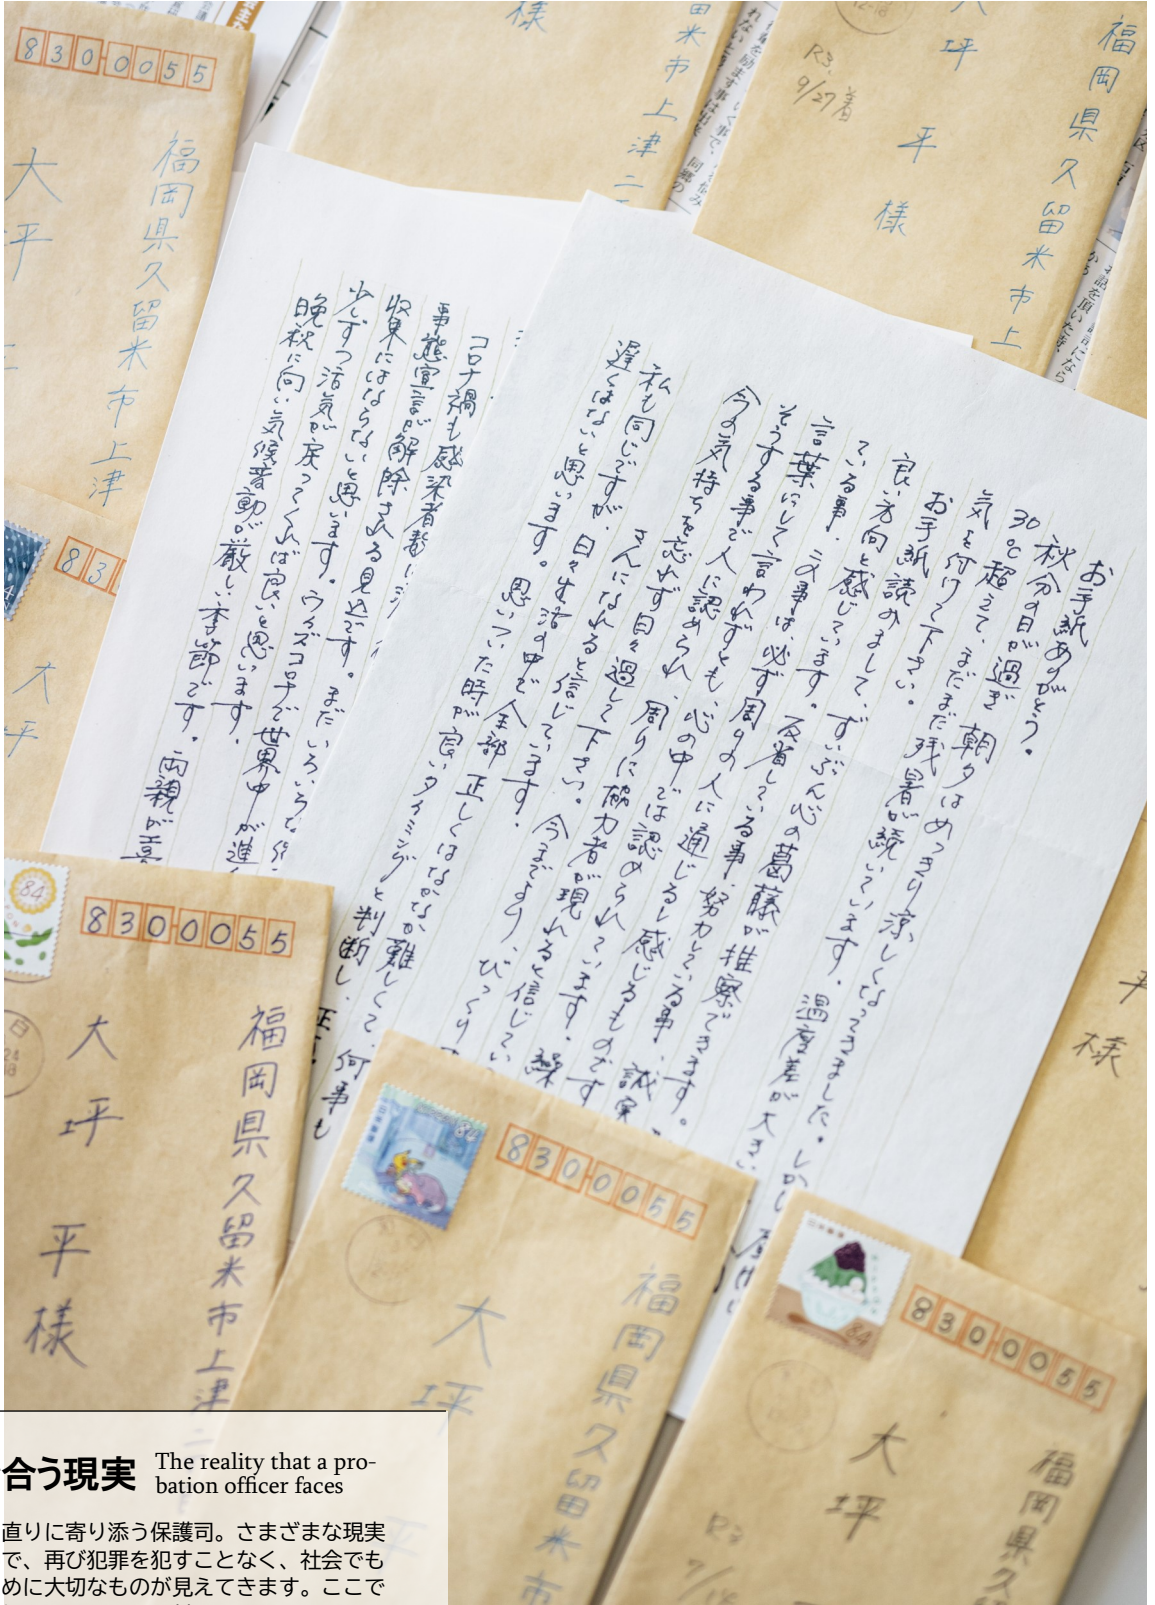 8300055
福岡県久留米市上津
大坪
様
米市上津二
福岡県久留米市上
坪平様
R3.
9/27着
お手紙ありがとう。
秋分の日が過ぎ 朝夕はめっきり涼しくなってきました。しかし
30℃超えて、まだまだ残暑が続いています。温度差が大きい
気を付けて下さい。
お手紙読みまして、ずいぶん心の葛藤が推察できます。
良い方向と感じています。反省している事、努力している事、誠実
ている事、この事は、必ず周りの人に通じると感じるものです
言葉にして言われずとも、心の中では認められています。
そうする事で人に認められ、周りに協力者が現れると信じてい
今の気持ちを忘れず日々過して下さい。今までより、びっくり
さんになれると信じています。
私も同じですが、日々生活の中で全部正しくはなかなか難しくて、何事も
遅くはないと思います。思いついた時が良いタイミングと判断し、
コロナ禍も感染者数
事態宣言が解除される見込です。まだいろいろ
収束にはならないと思います。ウィズコロナで世界中が進
少しずつ活気が戻ってくれば良いと思います。
晩秋に向い気候変動が厳しい季節です。両親が喜
83
大坪
84
8300055
福岡県久留米市上津二
大坪平様
平様
8300055
福岡県久留米市
大坪
8300055
福岡県久留
大坪
R3
合う現実
The reality that a pro-
bation officer faces
直りに寄り添う保護司。さまざまな現実
で、再び犯罪を犯すことなく、社会でも
めに大切なものが見えてきます。ここで